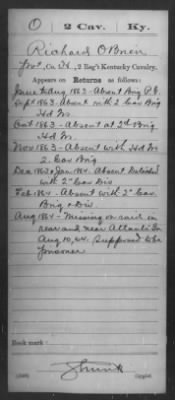 O 2 Cav. Ky.
Richard O'Brien
Co. H, 2 Reg't Kentucky Cavalry.
Appears on Returns as follows:
June & Aug 1863 - Absent Brig
Sept 1863 - Absent with 2 Cav Brig
Hd Qrs
Oct 1863 - Absent at 2d Brig
Hd Qr
Nov 1863 - Absent with Hd Qrs
2. Cav Brig
Dec 1863 & Jan 1864 - Absent Detached
with 2" Cav Div
Feb 1864 - Absent with 2" Cav.
Brig & Div.
Aug 1864 - Missing on raid in
rear and near Atlanta Ga
Aug 10, 64. Supposed to be
prisoner
Book mark:
Copyist.